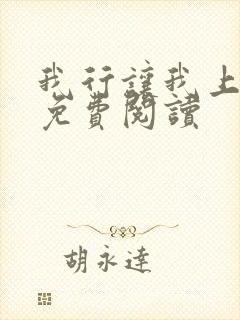 我行讓我上
免費閱讀
胡永達